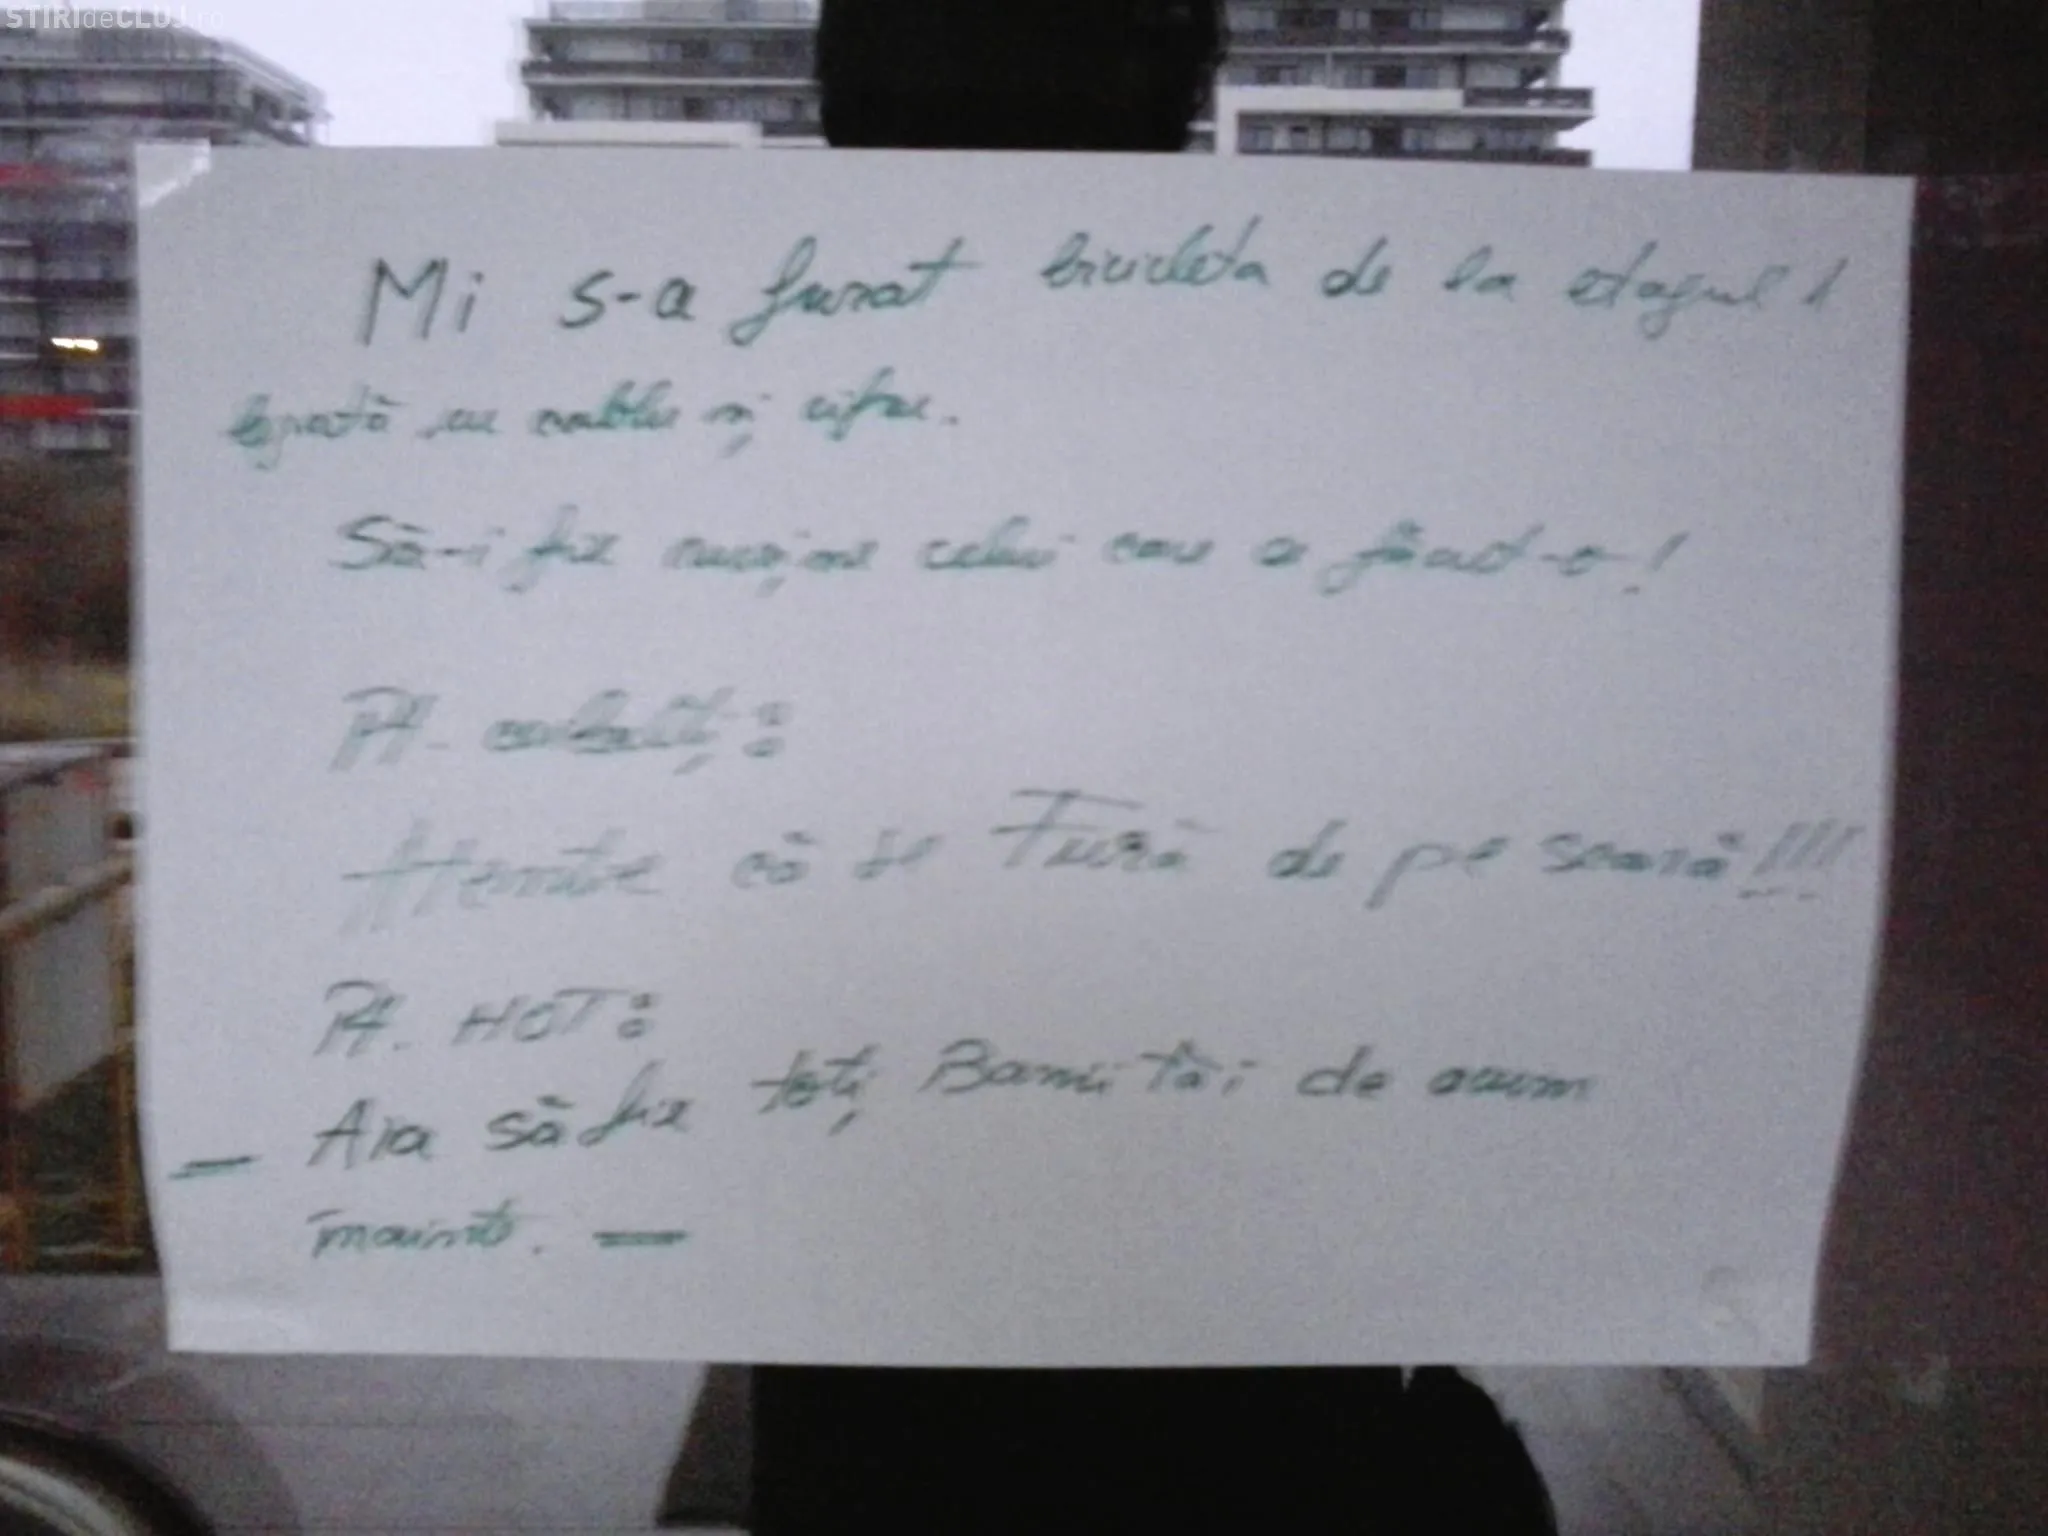 STIRIdeCLUJ.ro
Mi s-a furat bicicleta de la etajul 1
legată cu cablu și cifru.
Să-i fie rușine celui care a făcut-o!
Pt.
Atenție că se Fură de pe scară!!!
Pt. HOT:
- Aia să fie toți Banii tăi de acum
înainte. -